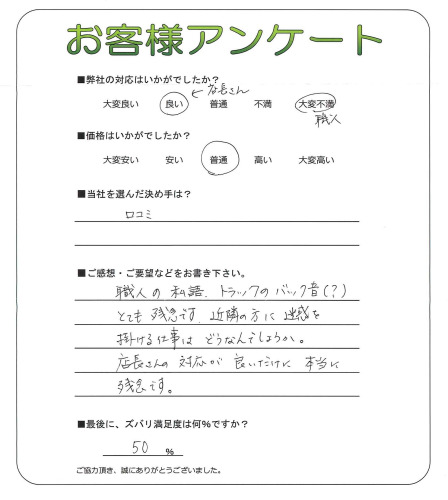 お客様アンケート
■弊社の対応はいかがでしたか?
←店長さん
大変良い 良い 普通 不満 大変不満
職人
■価格はいかがでしたか?
大変安い 安い 普通 高い 大変高い
■当社を選んだ決め手は?
口コミ
■ご感想・ご要望などをお書き下さい。
職人の私語、トラックのバック音(?)
とても残念です。近隣の方に迷惑を
掛ける仕事はどうなんでしょうか。
店長さんの対応が良いだけに本当に
残念です。
■最後に、ズバリ満足度は何%ですか?
50 %
ご協力頂き、誠にありがとうございました。